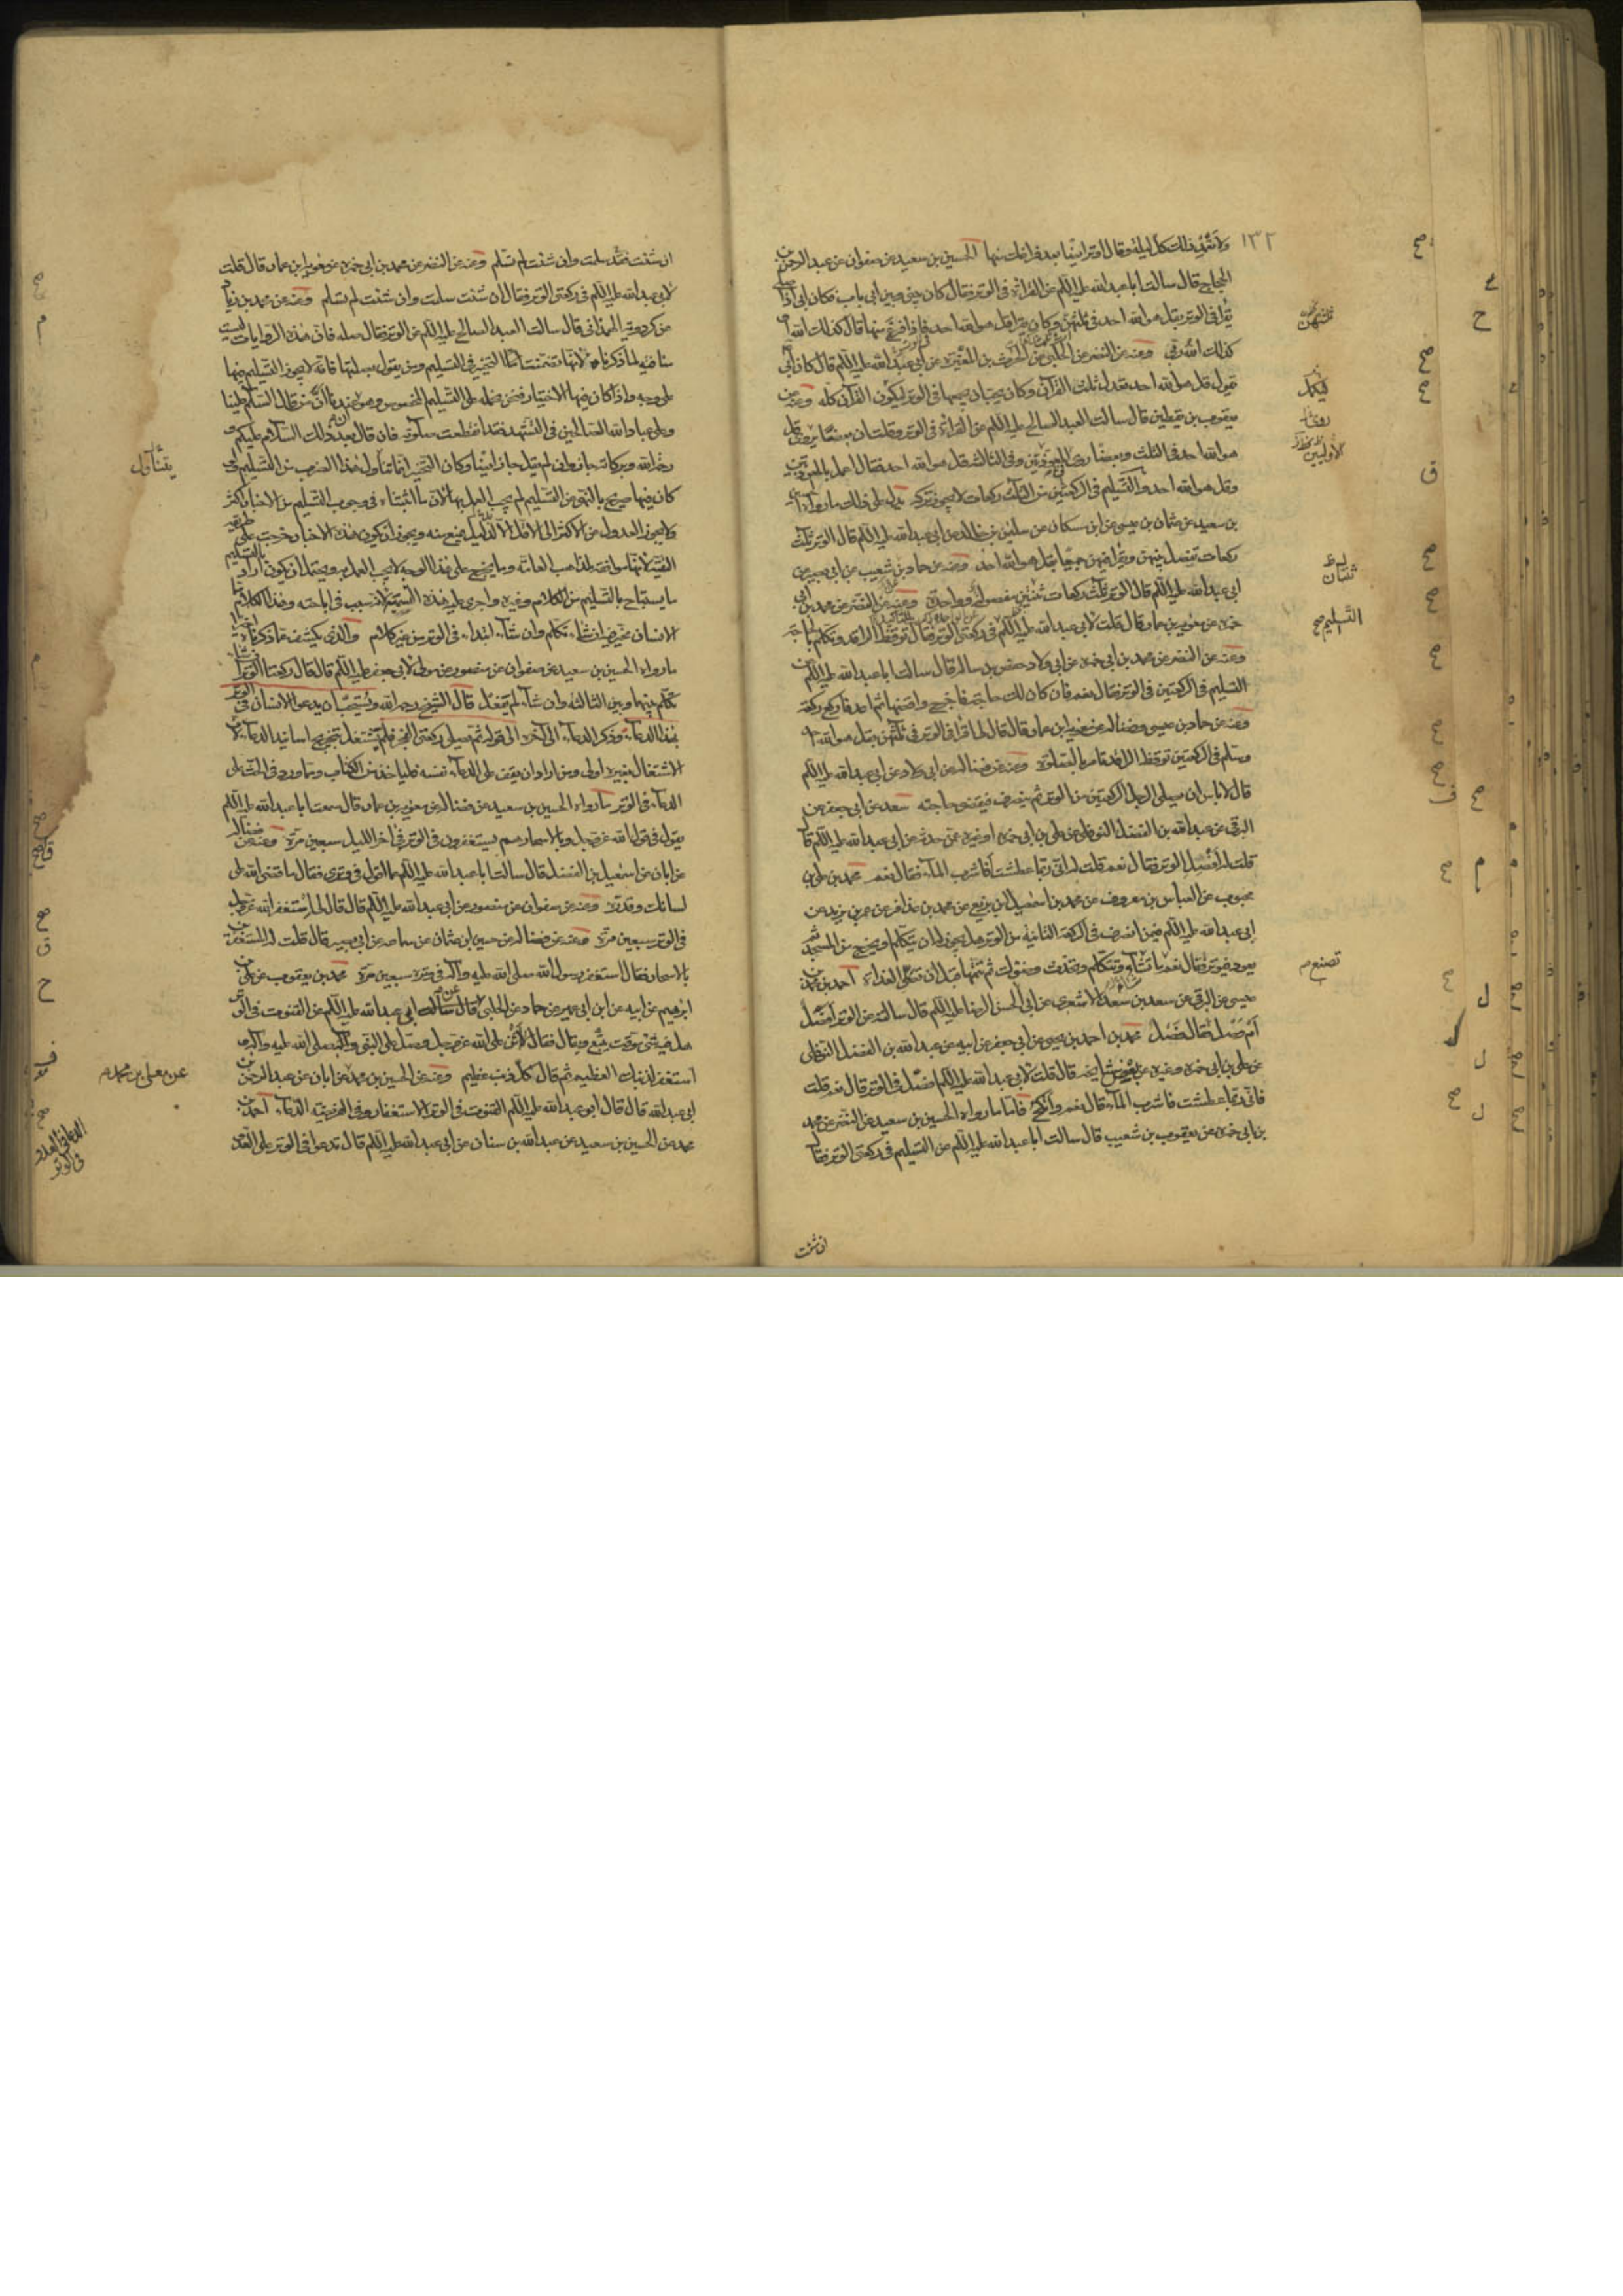 ١٣٢
ولاشئ ذلك كل ليلة وقال الوتر ايضا بعد فراغك منها الحسين بن سعيد عن صفوان عن عبد الرحمن بن
الحجاج قال سالت ابا عبد الله عليه السلم عن القراءة في الوتر فقال كان بيني وبين ابي باب فكان ابي اذا صلى
يقرأ في الوتر بقل هو الله احد في ثلثهن وكان يقرأ قل هو الله احد فاذا فرغ منها قال كذلك الله او
كذلك الله ربي وعنه عن النضر عن الحلبي عن الحرث بن المغيرة عن ابي عبد الله عليه السلم قال كان ابي
يقول قل هو الله احد تعدل ثلث القرآن وكان يحب ان يجمعها في الوتر ليكون القرآن كله وعنه عن
يعقوب بن يقطين قال سالت العبد الصالح عليه السلم عن القراءة في الوتر وقلت ان بعضا روى قل
هو الله احد في الثلث وبعضا روى المعوذتين وفي الثالثة قل هو الله احد فقال اعمل بالمعوذتين
وقل هو الله احد والتسليم في الركعتين من الثلث ركعات لا يجوز تركه يدل على ذلك ما رواه الحسين
بن سعيد عن عثمان بن عيسى عن ابن مسكان عن سليمن بن خالد عن ابي عبد الله عليه السلم قال الوتر ثلث
ركعات تفصل بينهن وتقرأ فيهن جميعا بقل هو الله احد وعنه عن حماد بن شعيب عن ابي بصير عن
ابي عبد الله عليه السلم قال الوتر ثلث ركعات ثنتين مفصولة وواحدة وعنه عن النضر عن محمد بن ابي
حمزة عن معوية بن عمار قال قلت لابي عبد الله عليه السلم في ركعتي الوتر فقال توقظ الراقد وتكلم بالحاجة
وعنه عن النضر عن محمد بن ابي حمزة عن ابي ولاد حفص بن سالم قال سالت ابا عبد الله عليه السلم عن
التسليم في الركعتين في الوتر فقال نعم فان كان لك حاجة فاخرج واقضها ثم عد فاركع ركعة
وعنه عن حماد بن عيسى وفضالة عن معوية ابن عمار قال قال لي اقرأ في الوتر في ثلثهن بقل هو الله احد
وسلم في الركعتين توقظ الراقد وتامر بالصلوة وعنه عن فضالة عن ابي ولاد عن ابي عبد الله عليه السلم
قال لا باس ان يصلي الرجل الركعتين من الوتر ثم ينصرف فيقضي حاجته سعد عن ابي جعفر عن
البرقي عن عبد الله بن الفضل النوفلي عن علي بن ابي حمزة او غيره عمن حدثه عن ابي عبد الله عليه السلم قال
قلت له افصل الوتر فقال نعم قلت له اني ربما عطشت أفاشرب الماء فقال نعم محمد بن علي بن
محبوب عن العباس بن معروف عن محمد بن اسمعيل بن بزيع عن محمد بن عذافر عن عمر بن يزيد عن
ابي عبد الله عليه السلم فيمن انصرف في الركعة الثانية من الوتر هل يجوز له ان يتكلم او يخرج من المسجد ثم
يعود فيوتر فقال نعم ما تشاء وتتكلم وتحدث وضوءك ثم تتمها قبل ان تصلي الغداة احمد بن محمد بن
عيسى عن البرقي عن سعد بن سعد الاشعري عن ابي الحسن الرضا عليه السلم قال سالته عن الوتر افصل
أم وصل فقال فصل محمد بن احمد بن يحيى عن ابي جعفر عن ابيه عن عبد الله بن الفضل النوفلي
عن علي بن ابي حمزة وغيره عن بعض مشايخه قال قلت لابي عبد الله عليه السلم افصل في الوتر قال نعم قلت
فاني ربما عطشت فاشرب الماء قال نعم وانكح فاما ما رواه الحسين بن سعيد عن النضر عن محمد
بن ابي حمزة عن يعقوب بن شعيب قال سالت ابا عبد الله عليه السلم عن التسليم في ركعتي الوتر فقال
ان شئت
ثلثتهن
ليكمل
الأوليين
ثنتان
التسليم صح
تصنع م
ان شئت سلمت وان شئت لم تسلم وعنه عن النضر عن محمد بن ابي حمزة عن معوية ابن عمار قال قلت
لابي عبد الله عليه السلم في ركعتي الوتر فقال ان شئت سلمت وان شئت لم تسلم وعنه عن محمد بن زياد
عن كردويه الهمداني قال سالت العبد الصالح عليه السلم عن الوتر فقال صله فان هذه الروايات ليست
منافية لما ذكرناه لانها تضمنت التخيير في التسليم ومن يقول بصلتها فانه لا يجوز التسليم فيها
على وجه واذا كان فيها الاختيار فنحن نحمله على التسليم المخصوص وهو عندنا ان من قال السلام علينا
وعلى عباد الله الصالحين في التشهد فقد انقطعت صلوته فان قال بعد ذلك السلام عليكم و
رحمة الله وبركاته جاز وان لم يقل جاز ايضا وكان التخيير انما تناول هذا الضرب من التسليم ولو
كان فيها صريح بالنهي عن التسليم لم يجب العمل بها لان ما اثبتناه في وجوب التسليم من الاخبار اكثر
ولا يجوز العدول عن الاكثر الى الاقل الا لدليل يمنع منه ويجوز ان يكون هذه الاخبار خرجت على طريق
التقية لانها موافقة لمذاهب العامة وما يخرج على هذا الوجه لا يجب العمل به ويحتمل ان يكون اراد بالتسليم
ما يستباح بالتسليم من الكلام وغيره واجرى عليه هذه التسمية لانه سبب في اباحته وهذا الكلام مما
الانسان مخير فيه ان شاء تكلم وان شاء ابتداء في الوتر من غير كلام والذي يكشف عما ذكرناه
ما رواه الحسين بن سعيد عن صفوان عن منصور عن مولى لابي جعفر عليه السلم قال قال ركعتا الوتر ان شاء
تكلم بينها وبين الثالثة وان شاء لم يفعل قال الشيخ رحمه الله ويستحب ان يدعو الانسان في الوتر
بهذا الدعاء وذكر الدعاء الى آخره الى قوله ثم تصلي ركعتي الفجر فلم نشتغل بتخريج اسانيد الدعاء لان
الاشتغال بغيره اولى ومن اراد ان يقف على الدعاء نفسه فلياخذ من الكتاب ومما ورد في الحث على
الدعاء في الوتر ما رواه الحسين بن سعيد عن فضالة عن معوية بن عمار قال سمعت ابا عبد الله عليه السلم
يقول في قول الله عز وجل وبالاسحار هم يستغفرون في الوتر في آخر الليل سبعين مرة وعنه عن فضالة
عن ابان عن اسمعيل بن الفضل قال سالت ابا عبد الله عليه السلم عما اقول في وتري فقال ما قضى الله على
لسانك وقدره وعنه عن صفوان عن منصور عن ابي عبد الله عليه السلم قال قال لي استغفر الله عز وجل
في الوتر سبعين مرة وعنه عن فضالة عن حسين ابن عثمان عن سماعة عن ابي بصير قال قلت له المستغفرين
بالاسحار فقال استغفر رسول الله صلى الله عليه وآله في وتره سبعين مرة محمد بن يعقوب عن علي بن
ابرهيم عن ابيه عن ابن ابي عمير عن حماد عن الحلبي قال سالت ابي عبد الله عليه السلم عن القنوت في الوتر
هل فيه شئ موقت يتبع ويقال فقال لا اثن على الله عز وجل وصل على النبي صلى الله عليه وآله و
استغفر لذنبك العظيم ثم قال كل ذنب عظيم وعنه عن الحسين بن محمد عن ابان عن عبد الرحمن بن
ابي عبد الله قال قال ابو عبد الله عليه السلم القنوت في الوتر الاستغفار وفي الفريضة الدعاء احمد بن
محمد عن الحسين بن سعيد عن عبد الله بن سنان عن ابي عبد الله عليه السلم قال تدعو في الوتر على العدو
يتناول
عن معلى بن محمد م
الدعاء في العدو
في الوتر